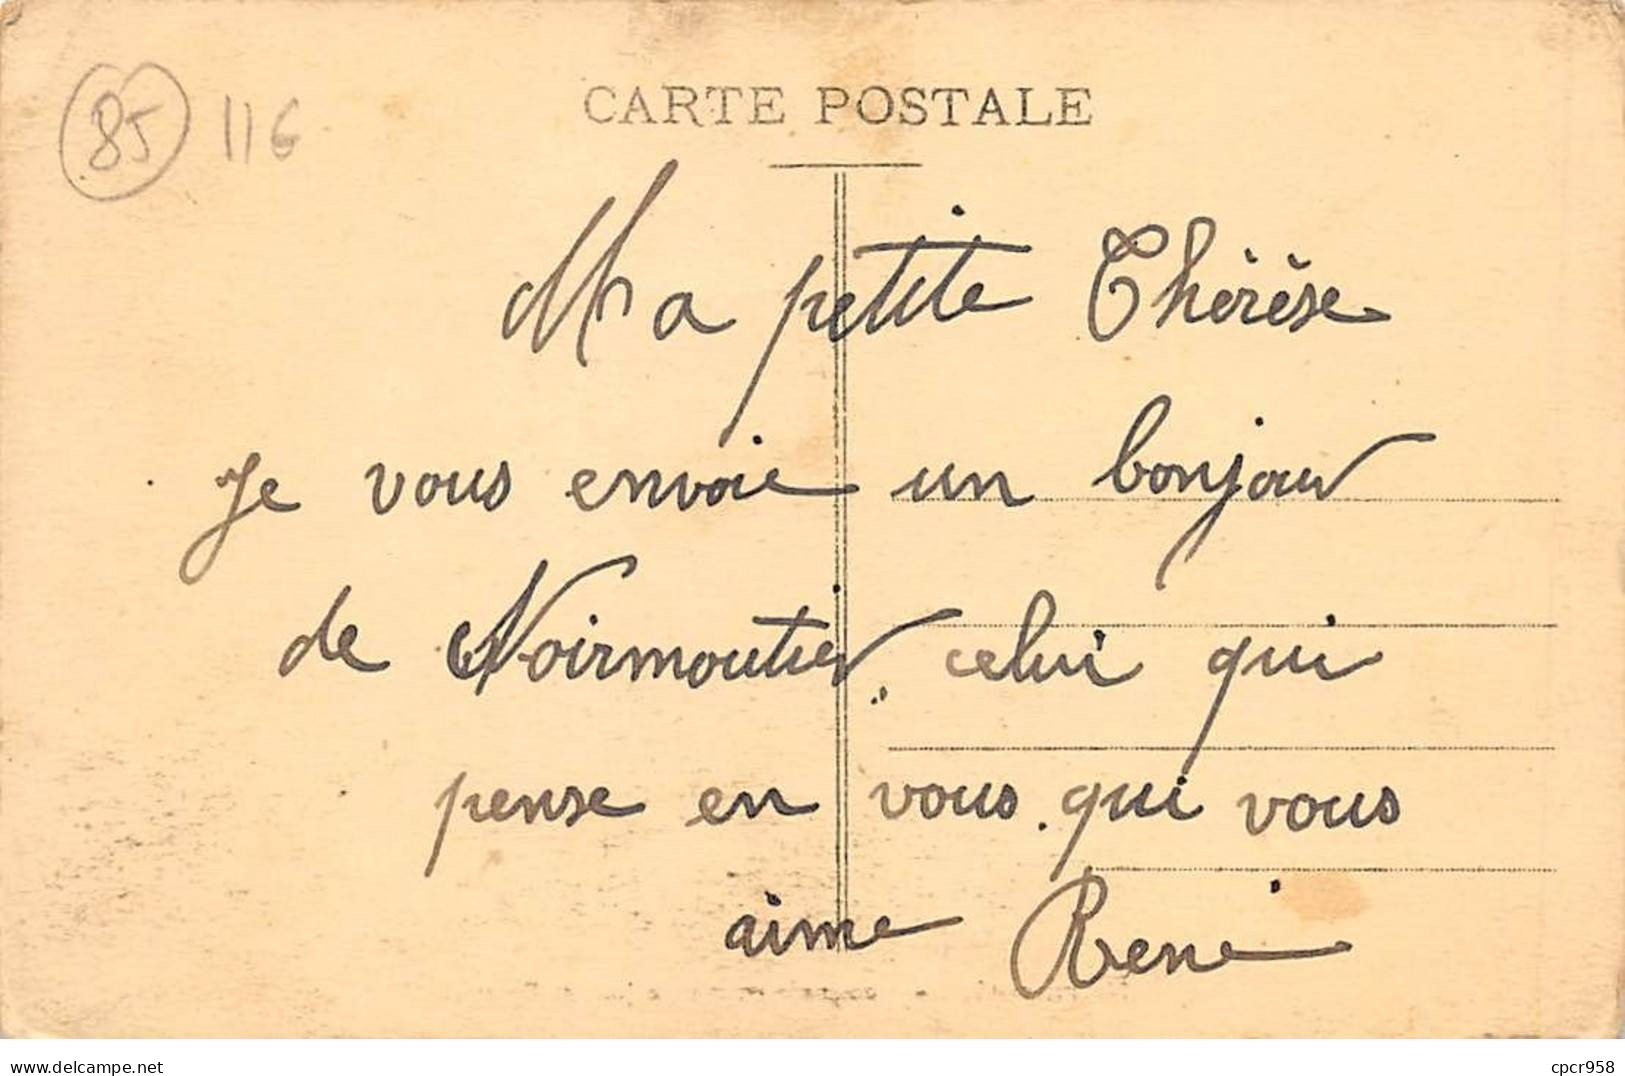 85 116
CARTE POSTALE
Ma petite Thérèse
Je vous envoie un bonjour
de Noirmoutier celui qui
pense en vous qui vous
aime René
delcampe.net
cpcr958